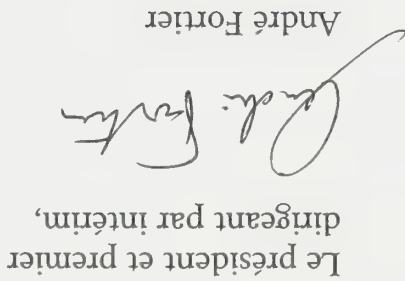 Le président et premier
dirigeant par intérim,
André Fortier
André Fortier